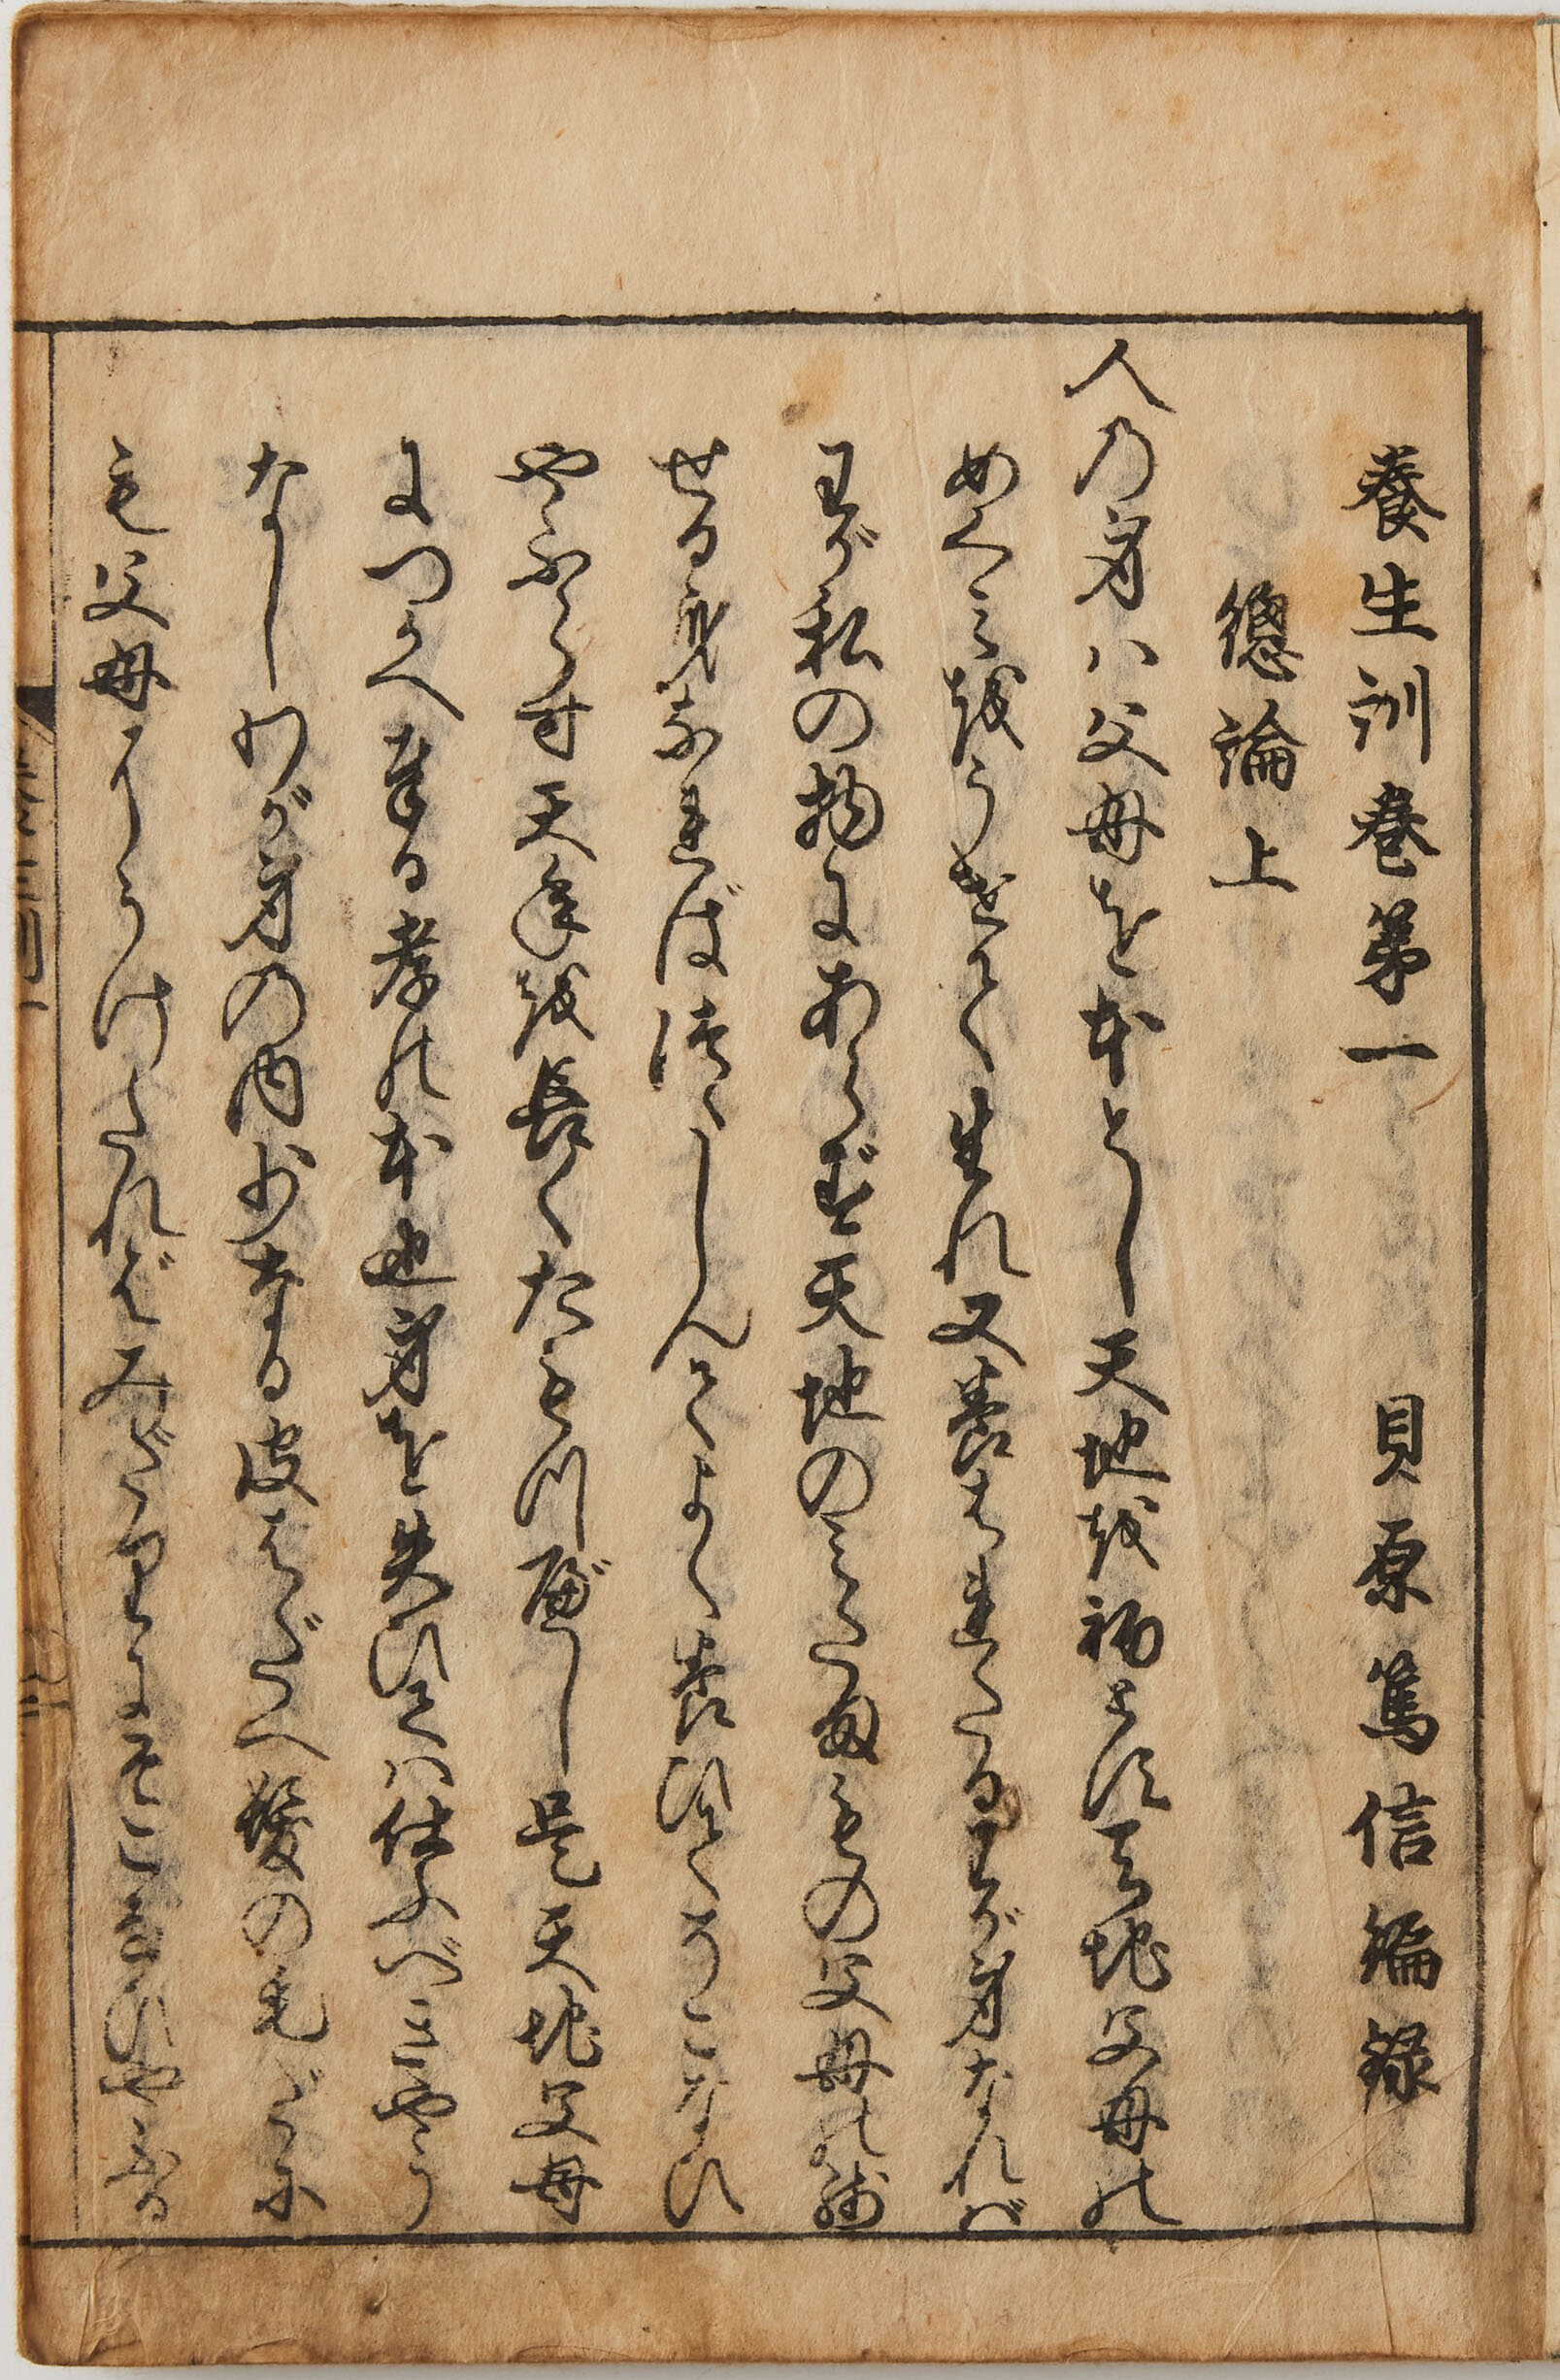 養生訓巻第一　貝原篤信編録
總論上
人の身ハ父母を本とし天地を初とす天地父母の
めぐミをうけて生れ又養はれたるわが身なれバ
わが私の物にあらず天地のミたまもの父母の残
せる身なればつゝしんでよく養ひてそこなひ
やぶらず天年を長くたもつべし是天地父母
につかへ奉る孝の本也身を失ひてハ仕ふべきやう
なしわが身の内少なる皮はだへ髪の毛だに
も父母にうけたれバみだりにそこなひやぶる